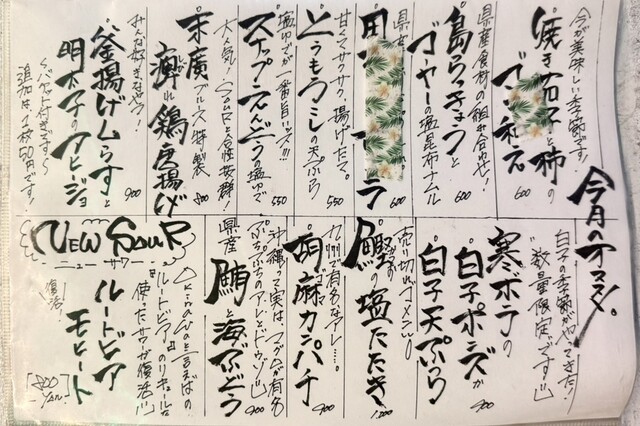 今月のオススメ。
今が美味しい季節のです。
焼き茄子と柿の
ゴマ和え
600
県産食材の組み合わせ!
島らっきょうと
ゴーヤーの塩昆布ナムル
600
600
甘くてサクサク、揚げたて。
とうもろこしの天ぷら
550
塩ゆでが一番旨いッス!!!
スナップえんどうの塩ゆで
550
大人気!SOURと合性抜群!
末廣ブルース特製
痺れ鶏唐揚げ
800
みんな好きなやつ!
釜揚げしらすと
明太子のアヒージョ
900
〈バゲット付きです〉
追加は1枚50円です。
白子の季節がやってきた!
"数量限定"です!!
寒ボラの
白子ポンズか
900
白子天ぷら
900
売り切れゴメン!!
鰹の塩たたき
1,200
九州で有名なアレ…。
胡麻カンパチ
900
沖縄って実は、マグロが有名
ぷちぷちのアレとドウゾ!!
県産
鮪と海ぶどう
900
NEW SOUR
ニューサワー
Okinawaと言えばの
『ルートビア』のリキュールを
使ったサワーが復活!!
ルートビア
モヒート
復活!
[800 YEN]